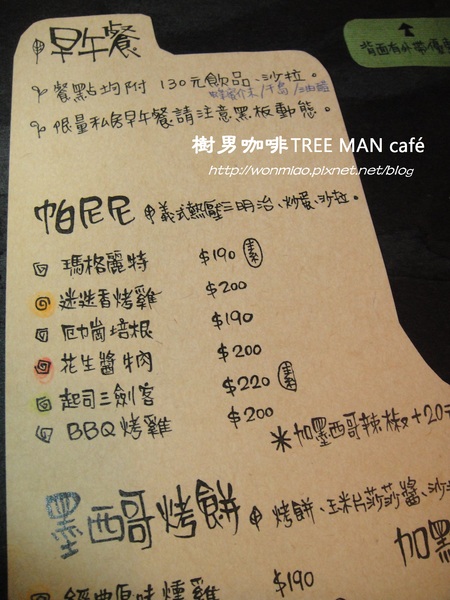 早午餐
背面有外帶優
餐點均附 130元飲品、沙拉。
蜂蜜芥末/千島/油醋
限量私房早午餐請注意黑板動態。
樹男咖啡TREE MAN café
http://wonmiao.pixnet.net/blog
帕尼尼 義式熱壓三明治、炒蛋、沙拉。
瑪格麗特 $190 素
迷迭香烤雞 $200
厄崗培根 $190
花生醬牛肉 $200
起司三劍客 $220 素
BBQ 烤雞 $200
*加墨西哥辣椒+20元
墨西哥烤餅 烤餅、玉米片莎莎醬、沙
加黑
經典原味燻雞 $190